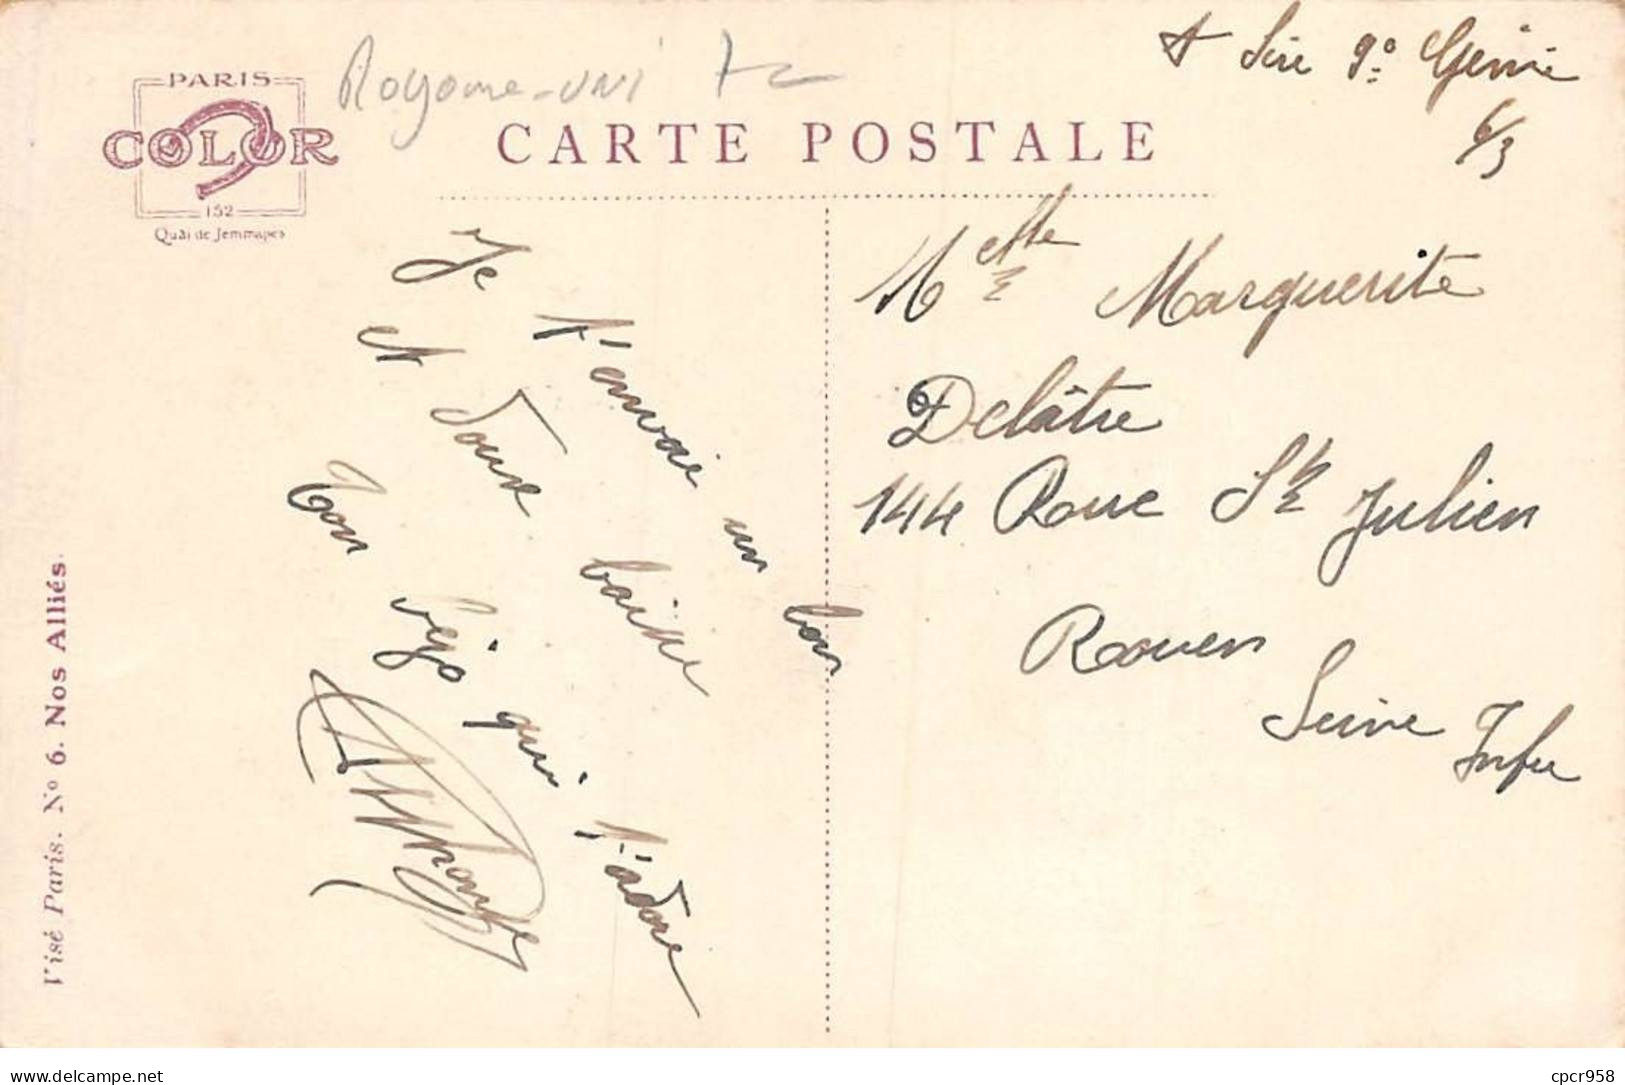 PARIS
COLOR
152
Quai de Jemmapes
Royaume-uni
CARTE POSTALE
9° Génie
6/3
Je t'envoi un bon
et douse baiser
Ton qui t'adore
Melle Marguerite
Delâtre
144 Roue St Julien
Rouen
Seine Infre
Visé Paris. N° 6. Nos Alliés.
delcampe.net
cpcr958